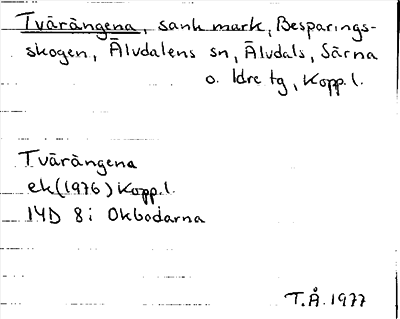 Tvärängena, sank mark, Besparings-
skogen, Älvdalens sn, Älvdals, Särna
o. Idre tg, Kopp.l.
Tvärängena
ek(1976) Kopp.l.
14D 8i Okbodarna
T.Å. 1977